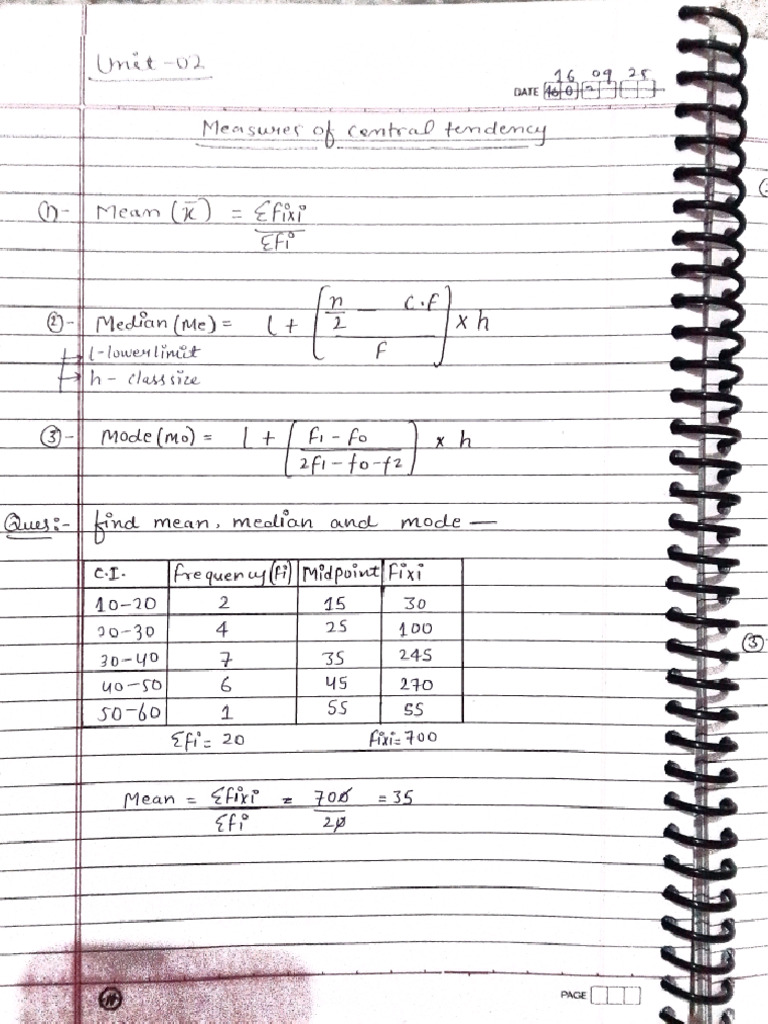 Unit-02
16 09 25
DATE
Measures of central tendency
①- Mean (x̄) = Σfixi / Σfi
②- Median (Me) = l + [(n/2 - c.f) / f] × h
l-lowerlimit
h - class size
③- Mode (Mo) = l + [(f1 - f0) / (2f1 - f0 - f2)] × h
Ques:- find mean, median and mode —
C.I. frequency (fi) Midpoint fixi
10-20 2 15 30
20-30 4 25 100
30-40 7 35 245
40-50 6 45 270
50-60 1 55 55
Σfi = 20 fixi = 700
Mean = Σfixi / Σfi = 700 / 20 = 35
PAGE
③